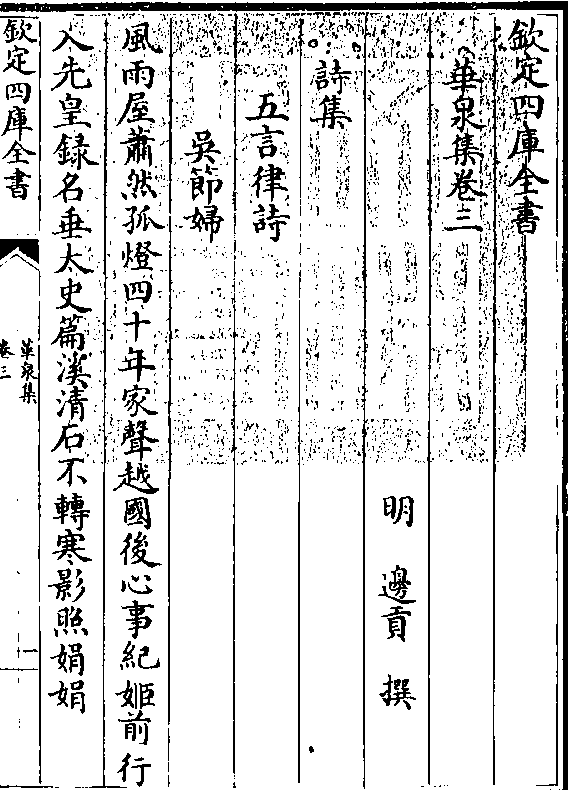 欽定四庫全書
華泉集卷三
明　邊貢　撰
詩集
五言律詩
吳節婦
風雨屋蕭然孤燈四十年家聲越國後心事紀姬前行
入先皇録名垂太史篇溪清石不轉寒影照娟娟
欽定四庫全書
華泉集
卷三
一